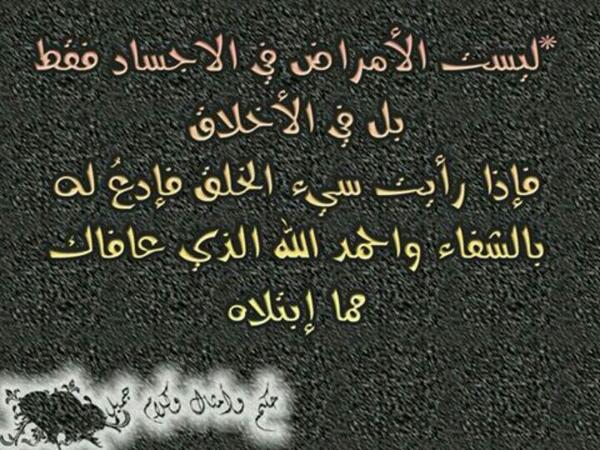 *ليست الأمراض في الاجساد فقط
بل في الأخلاق
فإذا رأيت سيء الخلق فإدعُ له
بالشفاء واحمد الله الذي عافاك
مما إبتلاه
حكم وأمثال وكلام جميل